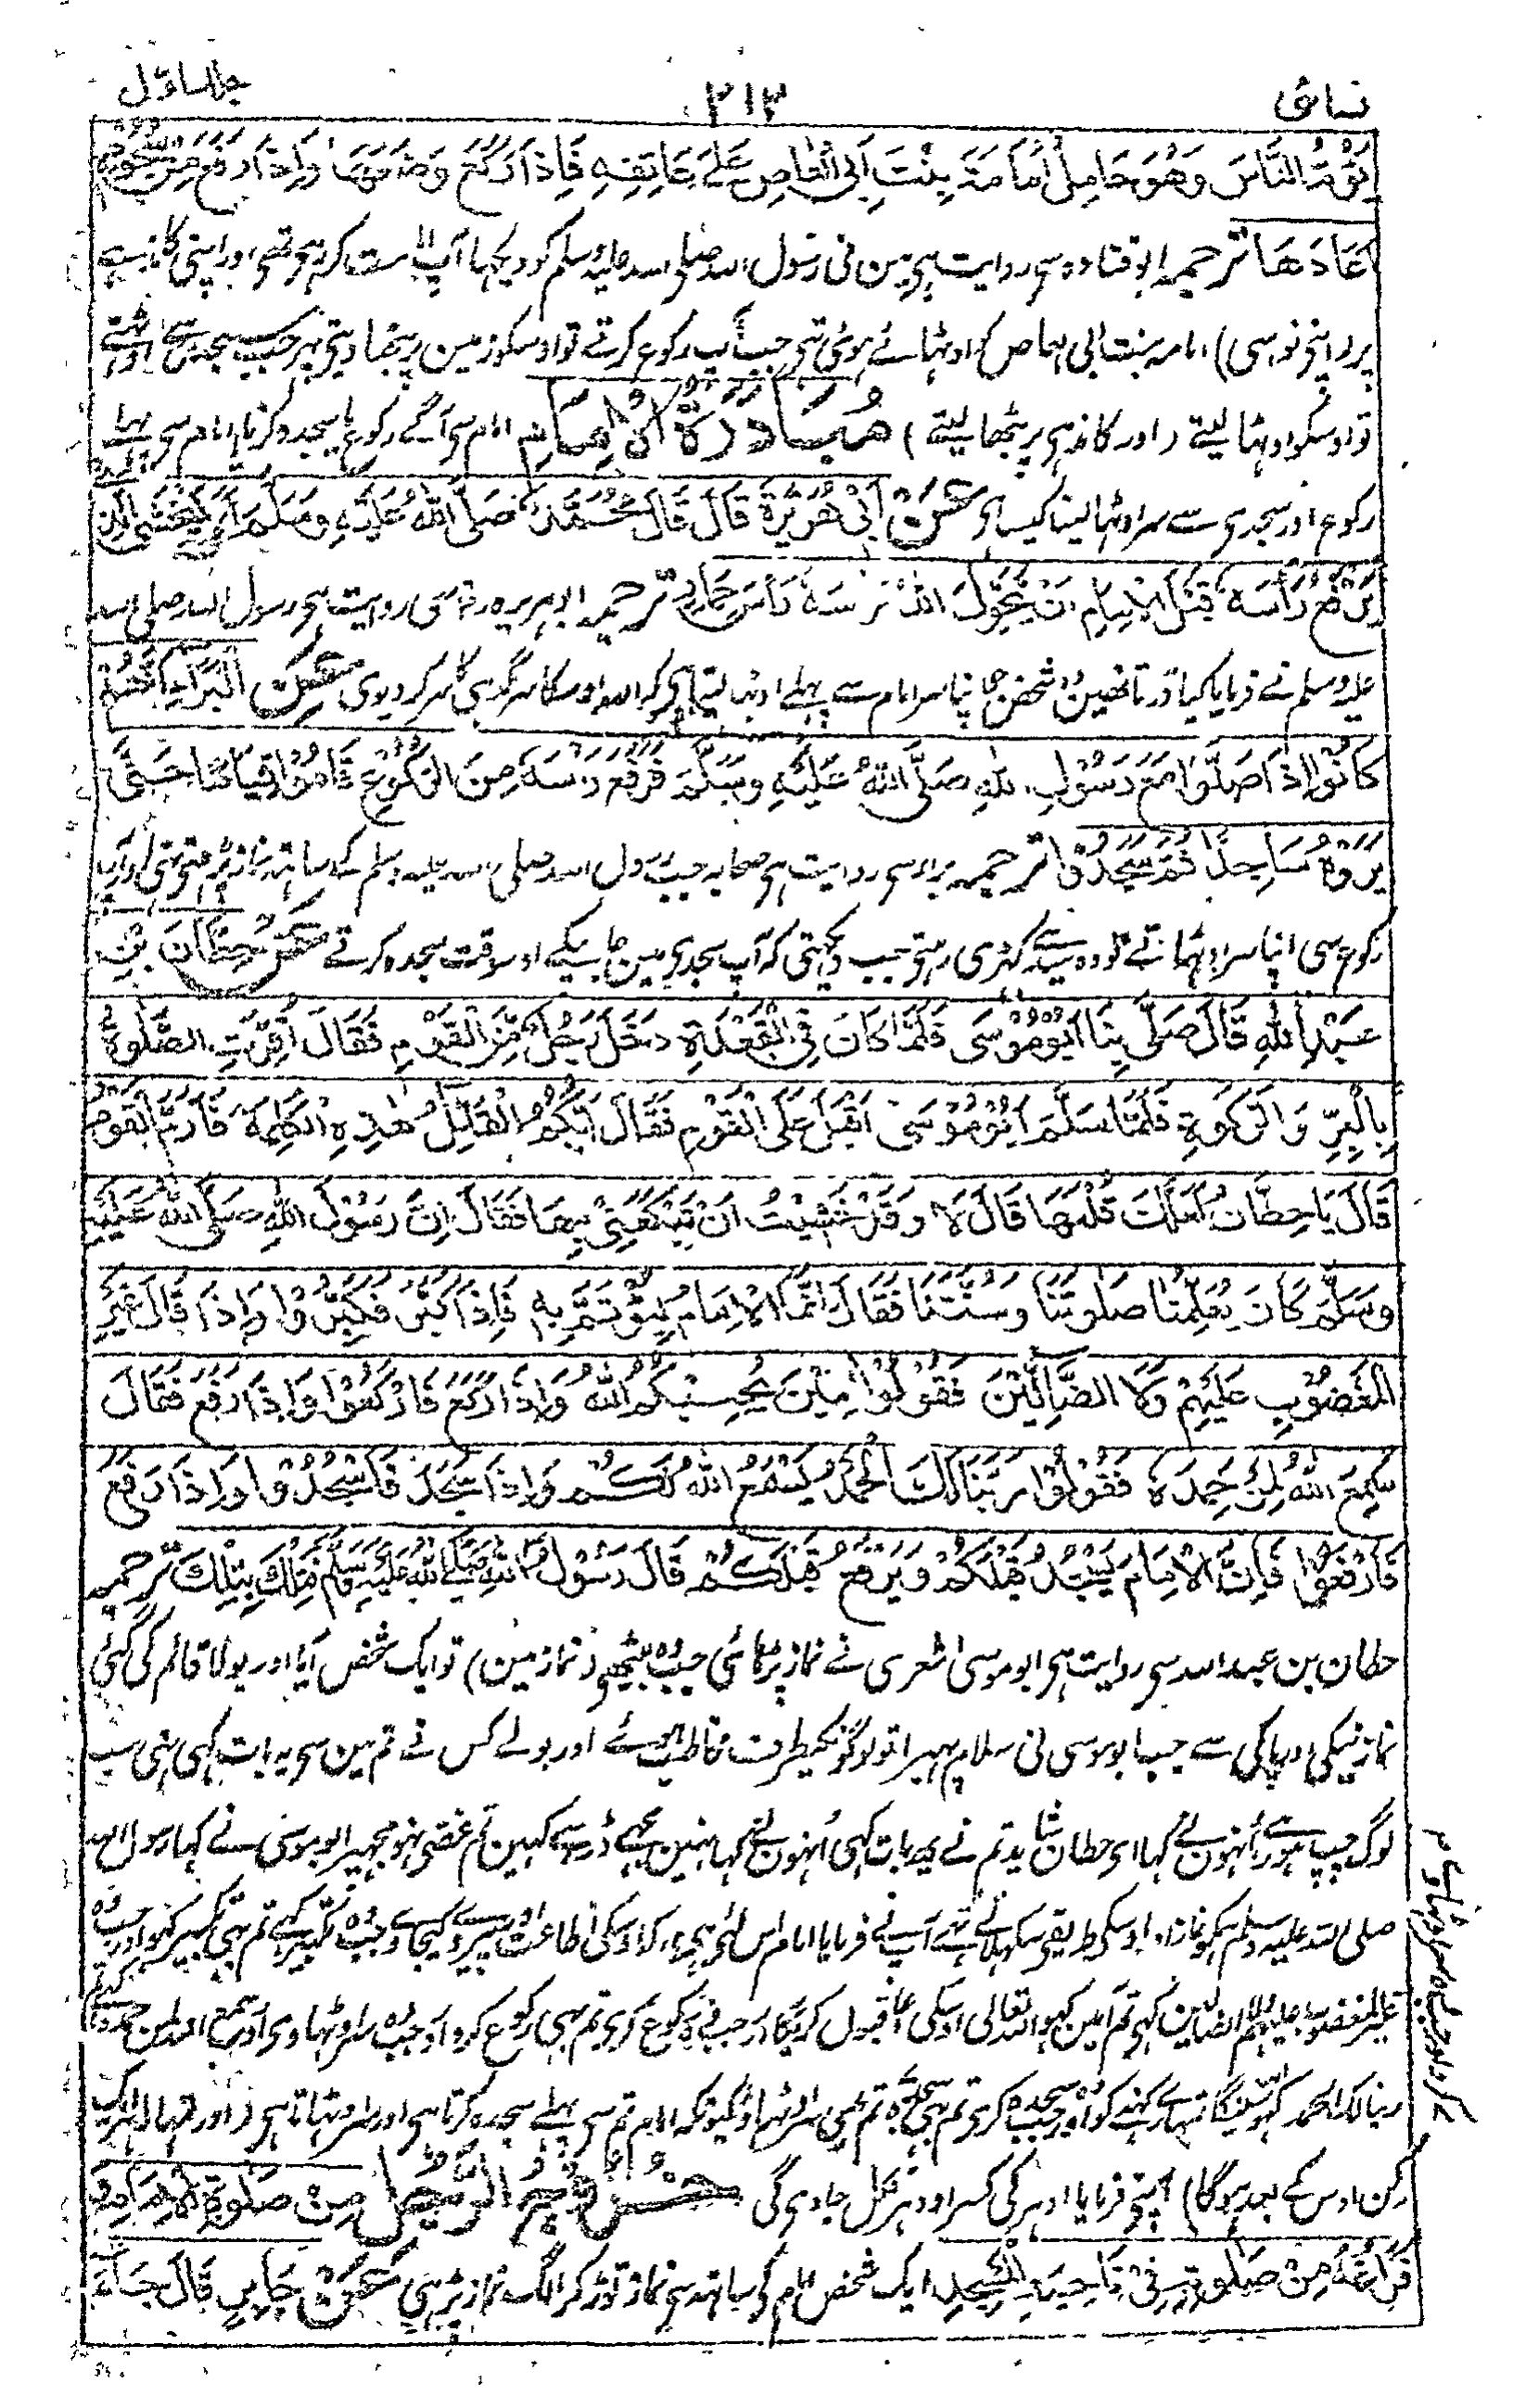 نسائی ۳۱۳ جلد اوّل
يَؤُمُّ النَّاسَ وَهُوَ حَامِلٌ أُمَامَةَ بِنْتَ أَبِي الْعَاصِ عَلَى عَاتِقِهِ فَإِذَا رَكَعَ وَضَعَهَا وَإِذَا رَفَعَ مِنْ سُجُودِهِ
أَعَادَهَا ترجمہ ابو قتادہ سی روایت ہی مین نی رسول اللہ صلی اللہ علیہ وسلم کو دیکہا آپ امامت کر رہی تہی اور اپنی کاندہے
پر (اپنی نواسی) امامہ بنت ابی العاص کو اوٹہائے ہوئی تہی جب آپ رکوع کرتے تو اوسکو زمین پر بٹھا دیتی پہر جب سجدہ سے اوٹہتے
تو اوسکو اوٹہا لیتے (اور کاندہی پر بٹھا لیتے) مُبَادَرَةُ الْإِمَامِ امام سی آگے رکوع یا سجدہ کرنا امام سی پہلے
رکوع اور سجدی سے سر اوٹہا لینا کیسا ہی عَنْ أَبِي هُرَيْرَةَ قَالَ قَالَ مُحَمَّدٌ صَلَّى اللهُ عَلَيْهِ وَسَلَّمَ أَلَا يَخْشَى الَّذِي
يَرْفَعُ رَأْسَهُ قَبْلَ الْإِمَامِ أَنْ يُحَوِّلَ اللهُ رَأْسَهُ رَأْسَ حِمَارٍ ترجمہ ابو ہریرہ رض سی روایت ہی رسول اللہ صلی اللہ
علیہ وسلم نے فرمایا کیا ڈرتا نھین وہ شخص جو اپنا سر امام سے پہلے اوٹہا لیتا ہی کہ اللہ اوسکا سر گدہی کا سر کر دیوی عَنِ الْبَرَاءِ أَنَّهُمْ
كَانُوا إِذَا صَلَّوْا مَعَ رَسُولِ اللهِ صَلَّى اللهُ عَلَيْهِ وَسَلَّمَ فَرَفَعَ رَأْسَهُ مِنَ الرُّكُوعِ قَامُوا قِيَامًا حَتَّى
يَرَوْهُ سَاجِدًا ثُمَّ سَجَدُوا ترجمہ براء سی روایت ہی صحابہ جب رسول اللہ صلی اللہ علیہ وسلم کے ساتہ نماز پڑہتی تہی اور آپ
رکوع سی اپنا سر اوٹہاتے تو وہ سیدہے کہڑی رہتی جب دیکہتی کہ آپ سجدی مین جا چکے اوسوقت سجدہ کرتے عَنْ حِطَّانَ بْنِ
عَبْدِ اللهِ قَالَ صَلَّى بِنَا أَبُو مُوسَى فَلَمَّا كَانَ فِي الْقَعْدَةِ دَخَلَ رَجُلٌ مِنَ الْقَوْمِ فَقَالَ أُقِرَّتِ الصَّلٰوةُ
بِالْبِرِّ وَالزَّكٰوةِ فَلَمَّا سَلَّمَ أَبُو مُوسَى أَقْبَلَ عَلَى الْقَوْمِ فَقَالَ أَيُّكُمُ الْقَائِلُ هٰذِهِ الْكَلِمَةَ فَأَرَمَّ الْقَوْمُ
قَالَ يَا حِطَّانُ لَعَلَّكَ قُلْتَهَا قَالَ لَا وَقَدْ خَشِيتُ أَنْ تَبْكَعَنِي بِهَا فَقَالَ إِنَّ رَسُولَ اللهِ صَلَّى اللهُ عَلَيْهِ
وَسَلَّمَ كَانَ يُعَلِّمُنَا صَلٰوتَنَا وَسُنَّتَنَا فَقَالَ إِنَّمَا الْإِمَامُ لِيُؤْتَمَّ بِهِ فَإِذَا كَبَّرَ فَكَبِّرُوا وَإِذَا قَالَ غَيْرِ
الْمَغْضُوبِ عَلَيْهِمْ وَلَا الضَّالِّينَ فَقُولُوا آمِينَ يُجِبْكُمُ اللهُ وَإِذَا رَكَعَ فَارْكَعُوا وَإِذَا رَفَعَ فَقَالَ
سَمِعَ اللهُ لِمَنْ حَمِدَهُ فَقُولُوا رَبَّنَا لَكَ الْحَمْدُ يَسْمَعُ اللهُ لَكُمْ وَإِذَا سَجَدَ فَاسْجُدُوا وَإِذَا رَفَعَ
فَارْفَعُوا فَإِنَّ الْإِمَامَ يَسْجُدُ قَبْلَكُمْ وَيَرْفَعُ قَبْلَكُمْ قَالَ رَسُولُ اللهِ صَلَّى اللهُ عَلَيْهِ وَسَلَّمَ فَتِلْكَ بِتِلْكَ ترجمہ
حطان بن عبداللہ سی روایت ہی ابو موسیٰ اشعری نے نماز پڑہائی جب وہ بیٹھی (نماز مین) تو ایک شخص آیا اور بولا قائم کی گئی
نماز نیکی اور پاکی سے جب ابو موسی نی سلام پہیرا تو لوگونکیطرف مخاطب ہوئے اور بولے کس نے تم مین سی یہ بات کہی تہی سب
لوگ چپ ہو رہے اُنہون نے کہا ای حطان شاید تم نے یہ بات کہی اُنہون نے کہا نہین مجہے ڈر ہے کہین تم غصی نہو مجہپر ابو موسی نے کہا رسول اللہ
صلی اللہ علیہ وسلم ہمکو نماز اور اوسکی طریقی سکہلاتے تہے آپ نے فرمایا امام اس لئی ہی کہ اوسکی اطاعت اور پیروی کیجاوے جب وہ تکبیر کہے تم بہی تکبیر کہو اور جب وہ
غیر المغضوب علیہم ولا الضالین کہی تم آمین کہو اللہ تعالی اوسکی دعا قبول کریگا اور جب وہ رکوع کری تم بہی رکوع کرو اور جب وہ سر اوٹہاوی اور سمع اللہ لمن حمدہ کہے تم
ربنا لک الحمد کہو اللہ سنیگا تمہارے کہنے کو اور جب وہ سجدہ کری تم بہی سجدہ کرو تم بہی سر اوٹہاؤ کیونکہ امام تم سی پہلے سجدہ کرتا ہی اور سر اوٹہاتا ہی (اور تمہارا ہر ایک
رکن اوس کے بعد ہوگا) آپنی فرمایا ادہر کی کسر اودہر نکل جاوی گی خُرُوجُ الرَّجُلِ مِنْ صَلٰوةِ الْإِمَامِ وَ
فَرَاغُهُ مِنْ صَلٰوتِهِ فِي نَاحِيَةِ الْمَسْجِدِ ایک شخص امام کی ساتہہ سی نماز توڑ کر الگ نماز پڑہی عَنْ جَابِرٍ قَالَ جَاءَ